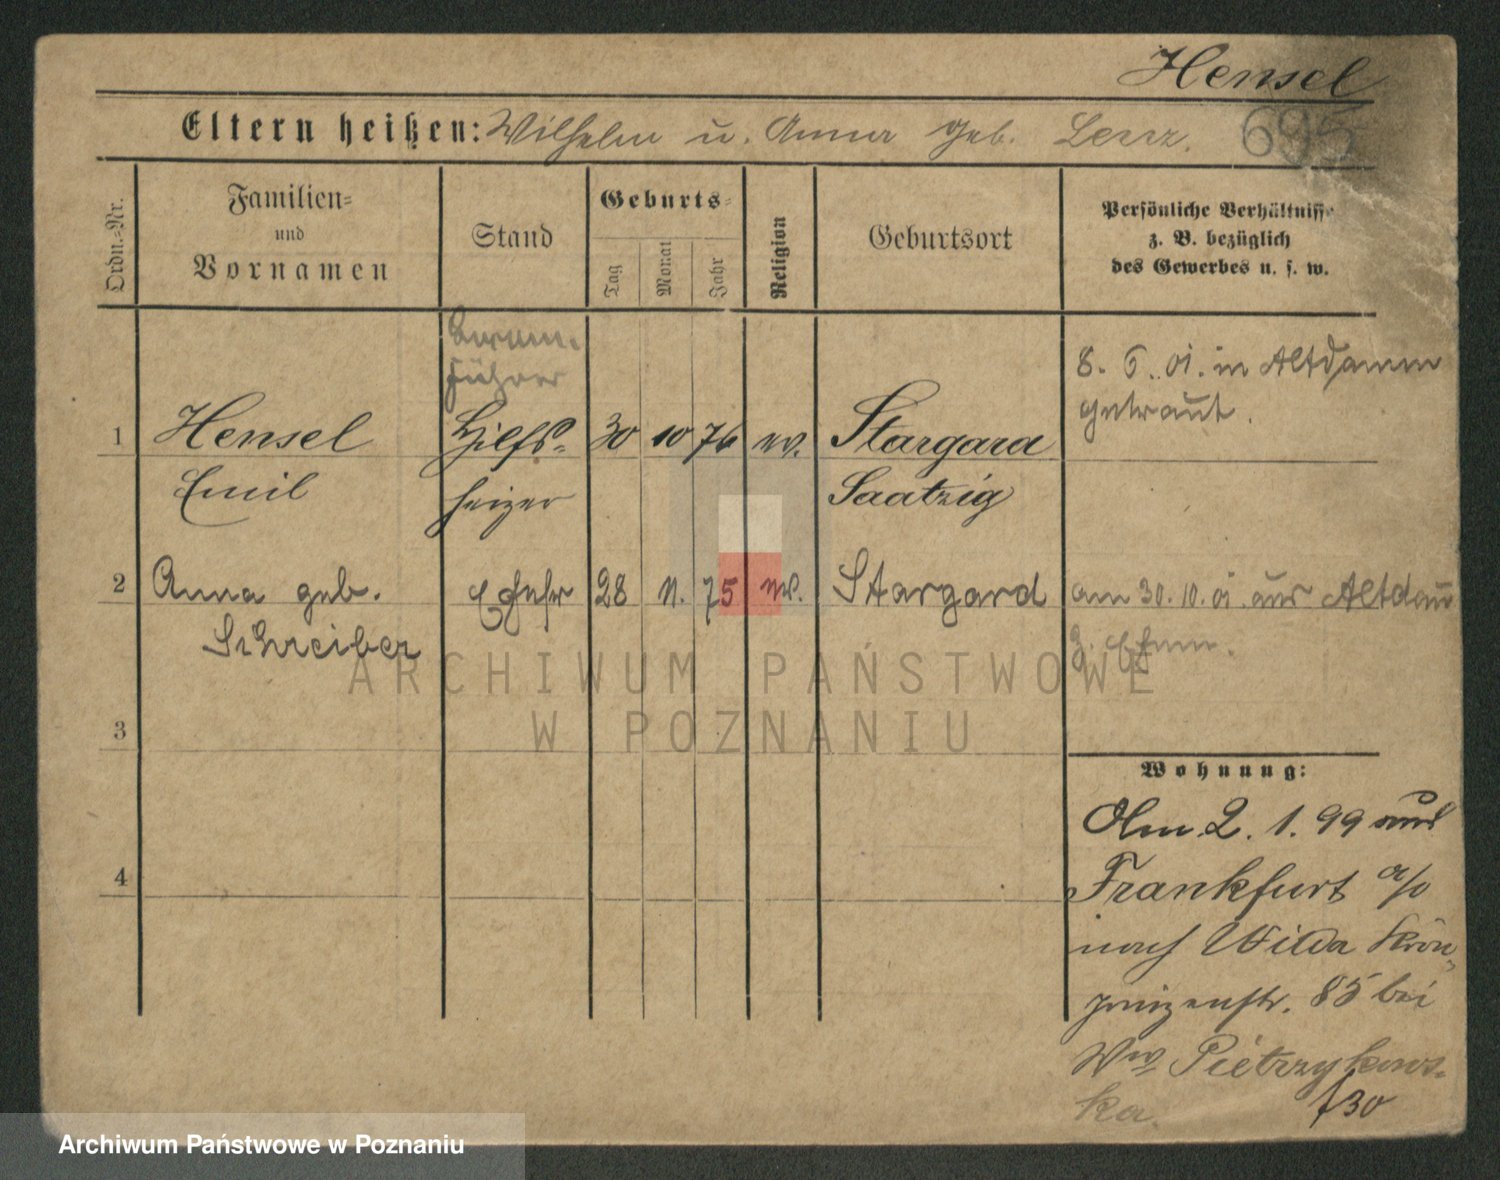 Hensel
695
Eltern heißen: Wilhelm u. Anna geb. Lenz.
Ordn.-Nr.
Familien=
und
Vornamen
Stand
Geburts=
Tag
Monat
Jahr
Religion
Geburtsort
Persönliche Verhältnisse
z. B. bezüglich
des Gewerbes u. s. w.
führer
8. 5. 01. in Altdamm
getraut.
1 Hensel Hilfs= 30 10 76 ev. Stargard
Emil heizer Saatzig
2 Anna geb. Ehefr 28 11. 75 ev. Stargard am 30. 10. 01. aus Altdam
Schreiber z. Ehem.
3
4
Wohnung:
Am 2. 1. 99 aus
Frankfurt a/o
nach Wilda Kron=
prinzenstr. 85 bei
Ww Pietrzykows=
ka.
730
ARCHIWUM PAŃSTWOWE
W POZNANIU
Archiwum Państwowe w Poznaniu